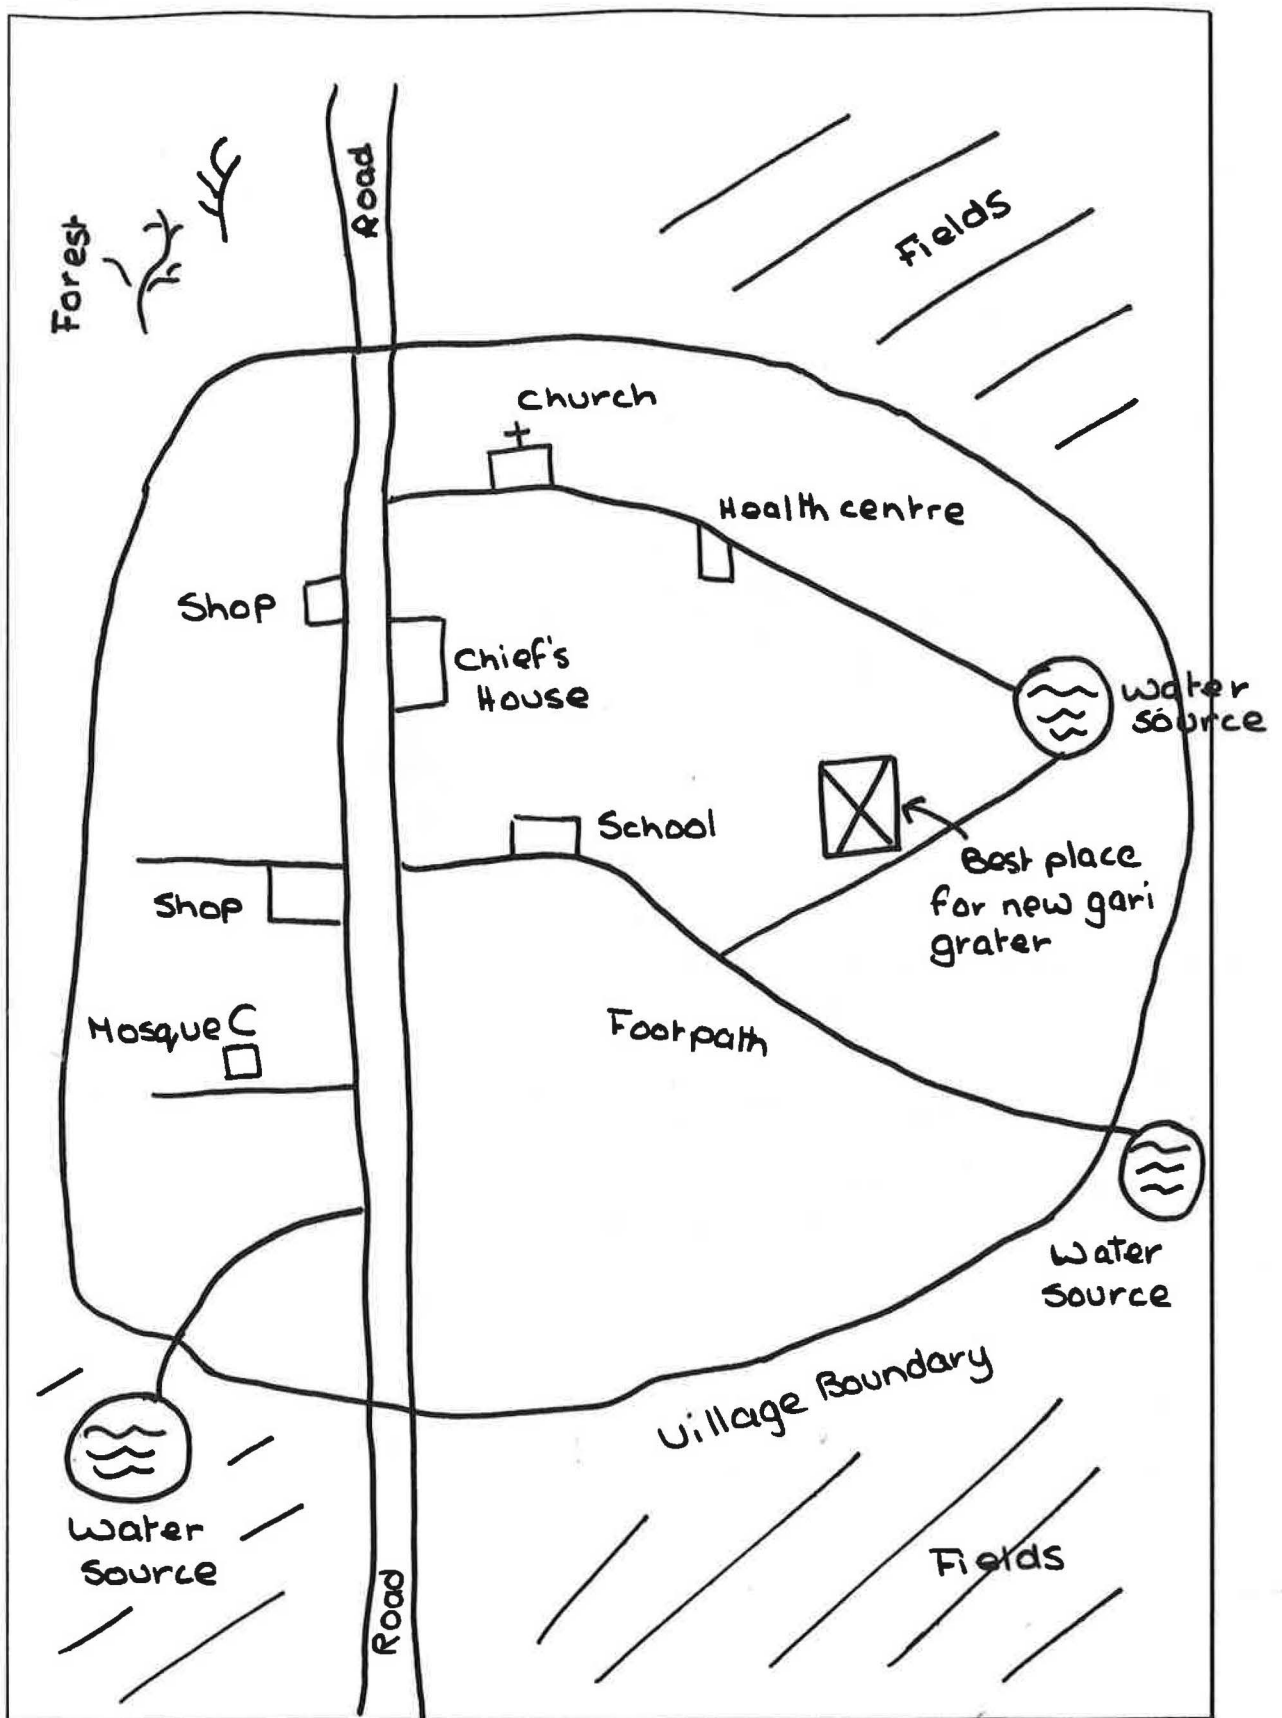 Road
Forest
Fields
Church
Health centre
Shop
Chief's
House
Water
source
School
Best place
for new gari
grater
Shop
Mosque
Footpath
Water
source
Village Boundary
Water
source
Fields
Road